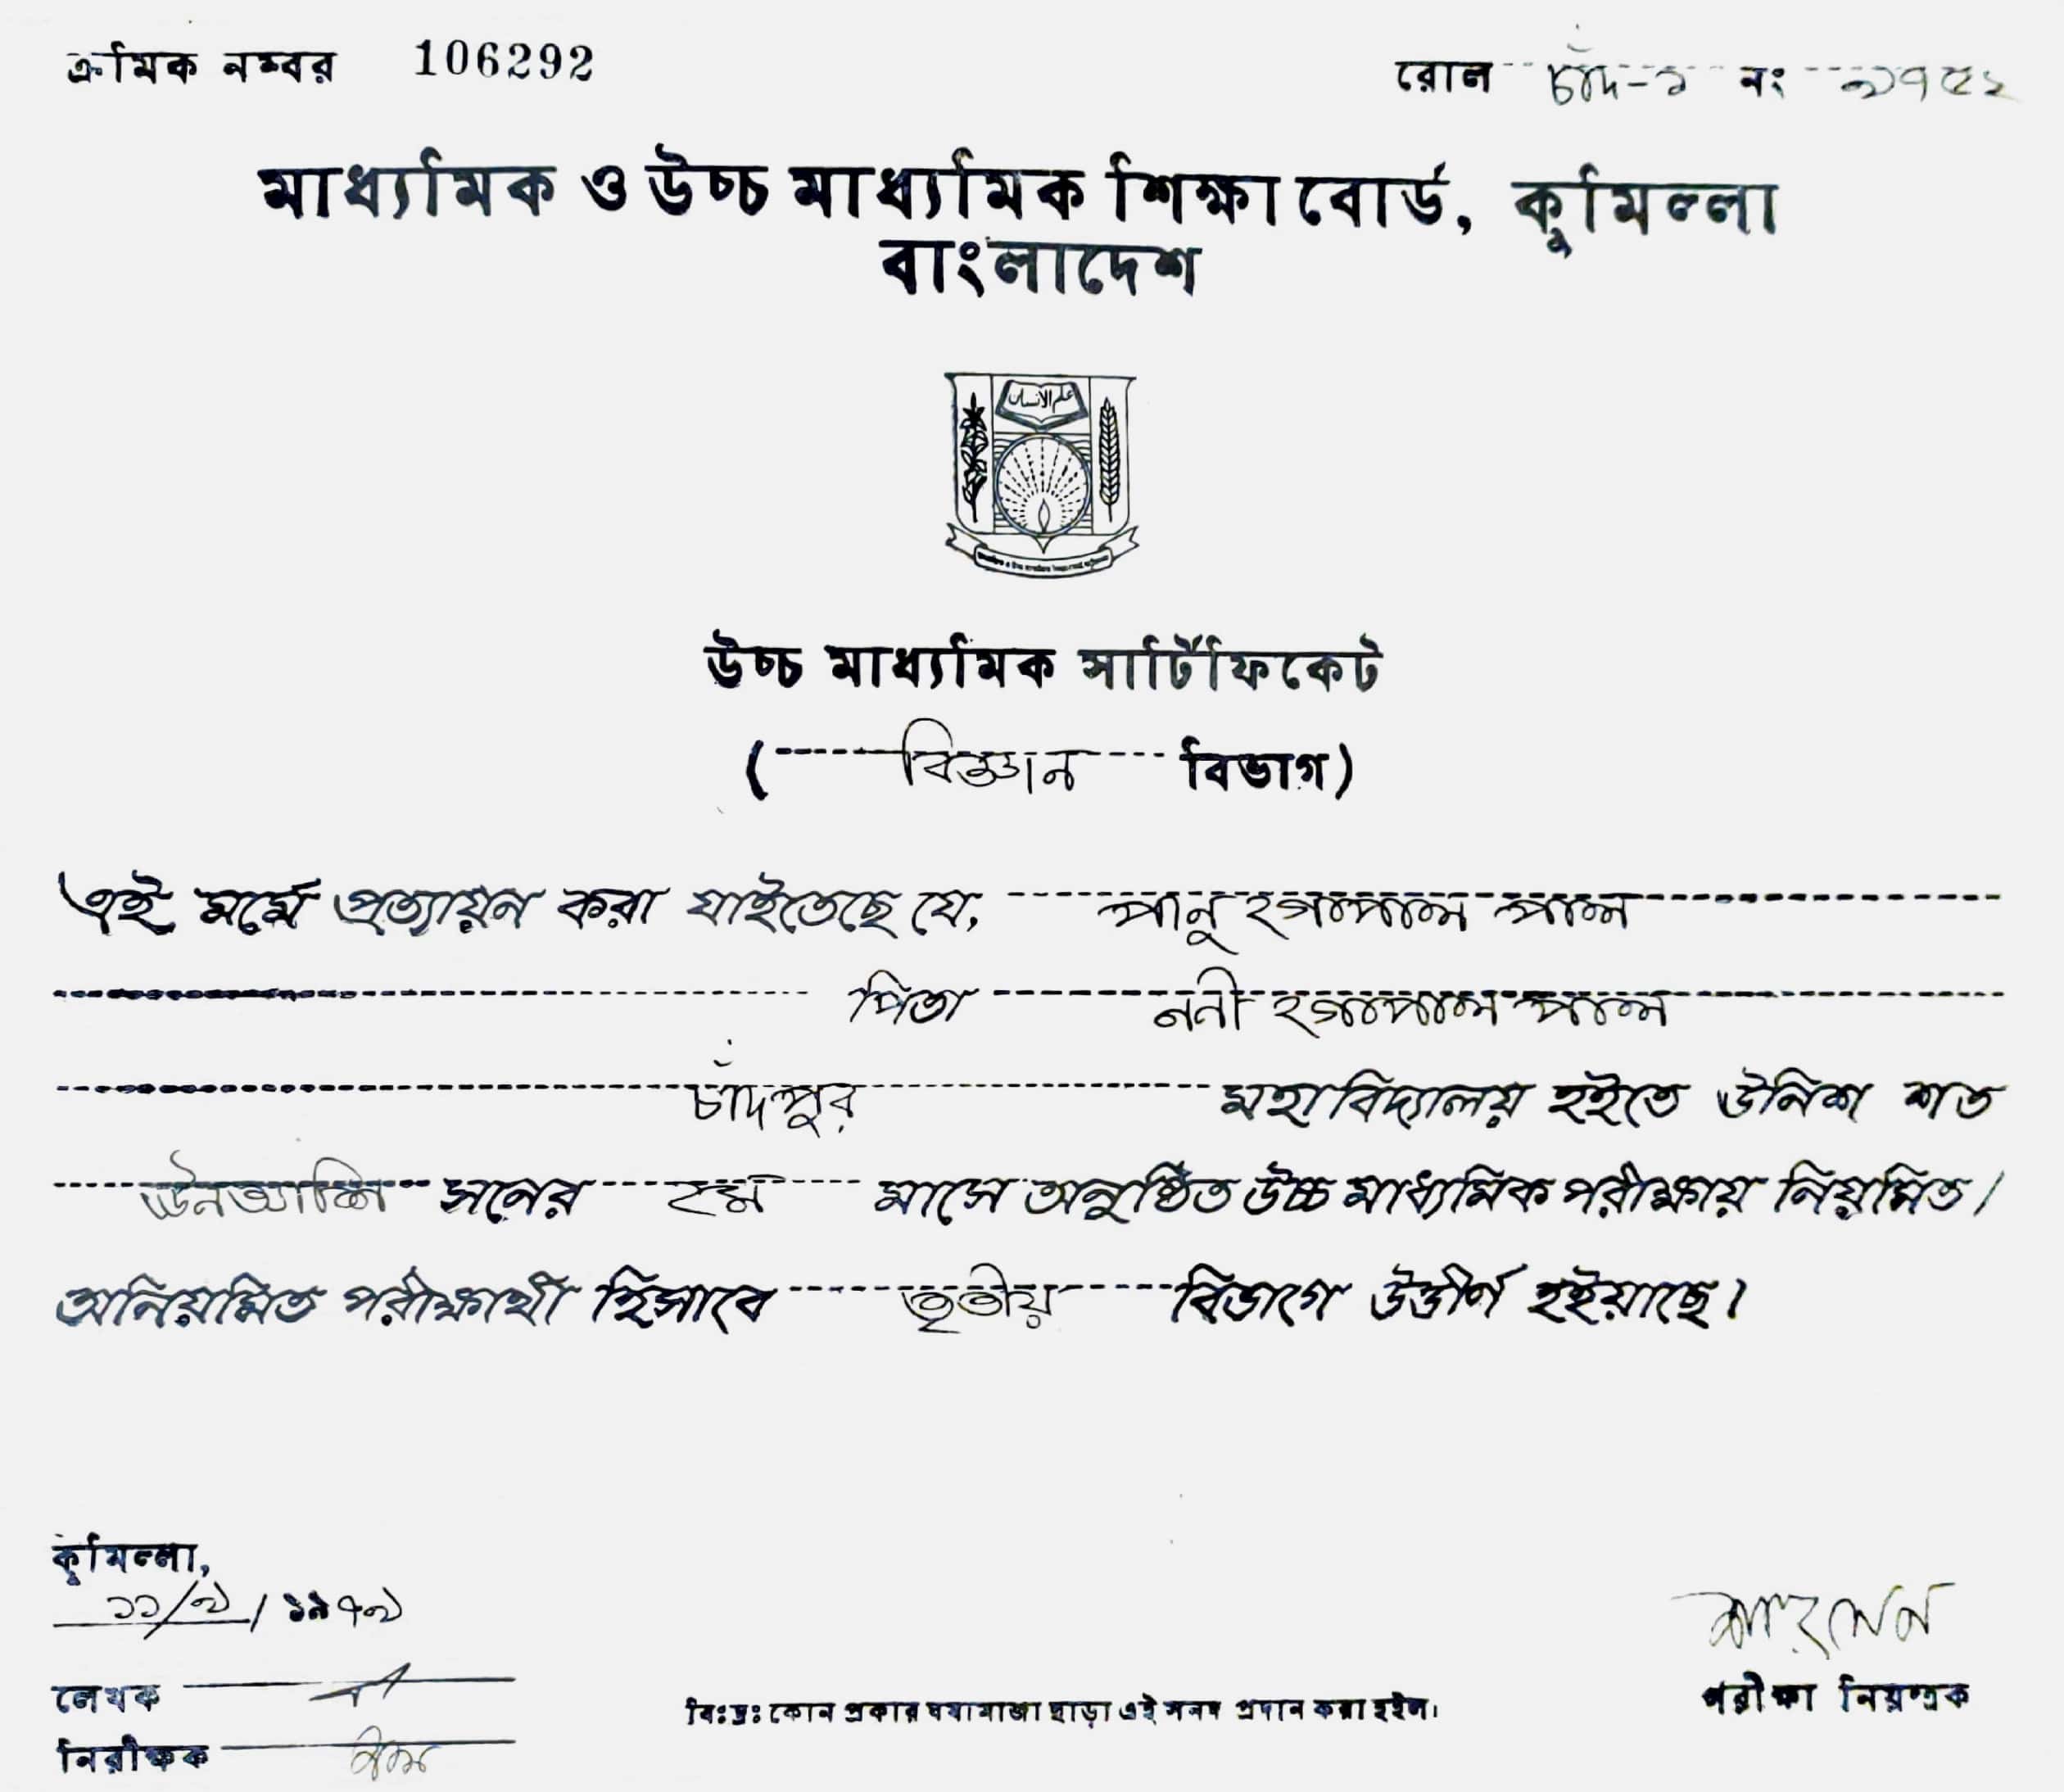 ক্রমিক নম্বর 106292 রোল চাঁদ-১ নং ৯৭৫২
মাধ্যমিক ও উচ্চ মাধ্যমিক শিক্ষা বোর্ড, কুমিল্লা
বাংলাদেশ
علم الانسان
উচ্চ মাধ্যমিক সার্টিফিকেট
(বিজ্ঞান বিভাগ)
এই মর্মে প্রত্যায়ন করা যাইতেছে যে, পানু গোপাল পাল
পিতা ননী গোপাল পাল
চাঁদপুর মহাবিদ্যালয় হইতে উনিশ শত
উনআশি সনের মে মাসে অনুষ্ঠিত উচ্চ মাধ্যমিক পরীক্ষায় নিয়মিত/
অনিয়মিত পরীক্ষার্থী হিসাবে তৃতীয় বিভাগে উত্তীর্ণ হইয়াছে।
কুমিল্লা,
পরীক্ষা নিয়ন্ত্রক
লেখক
বিঃদ্রঃ কোন প্রকার ঘষামাজা ছাড়া এই সনদ প্রদান করা হইল।
নিরীক্ষক